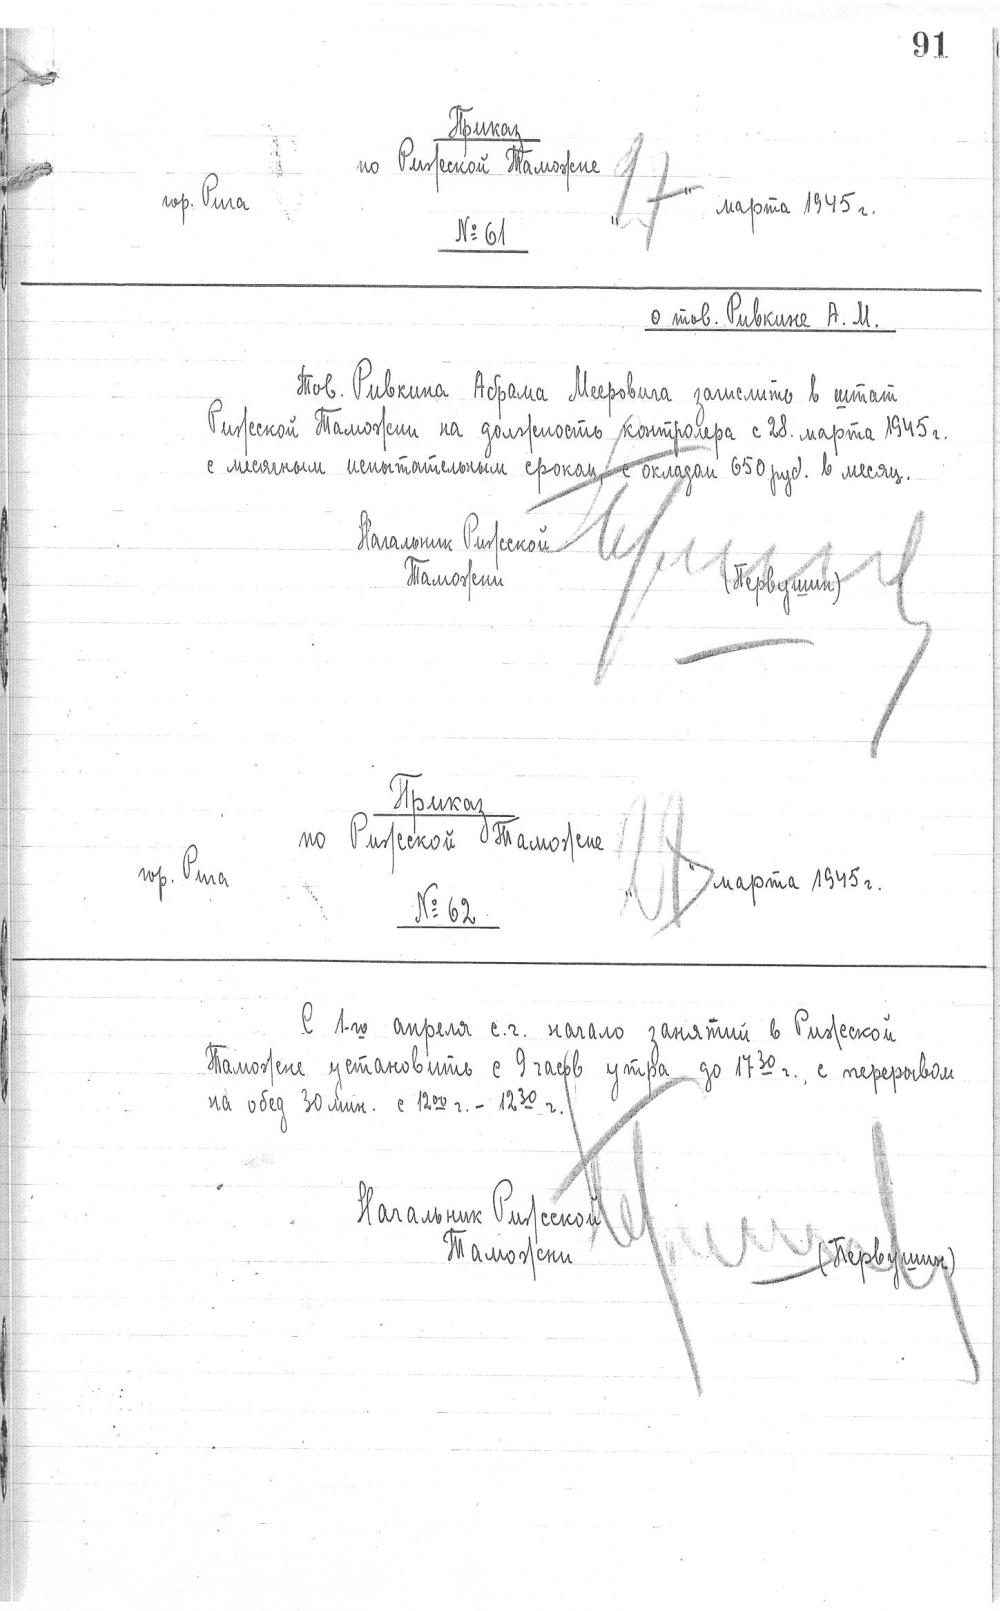 91
Приказ
по Рижской Таможне
гор. Рига
"27" марта 1945 г.
№ 61
о тов. Ривкине А. М.
Тов. Ривкина Абрама Мееровича зачислить в штат
Рижской Таможни на должность контролера с 28. марта 1945 г.
с месячным испытательным сроком, с окладом 650 руб. в месяц.
Начальник Рижской
Таможни
(Первушин)
Приказ
по Рижской Таможне
гор. Рига
марта 1945 г.
№ 62
С 1-го апреля с.г. начало занятий в Рижской
Таможне установить с 9 часов утра до 17 30 ч., с перерывом
на обед 30 мин. с 12 00 ч. - 12 30 ч.
Начальник Рижской
Таможни
(Первушин)